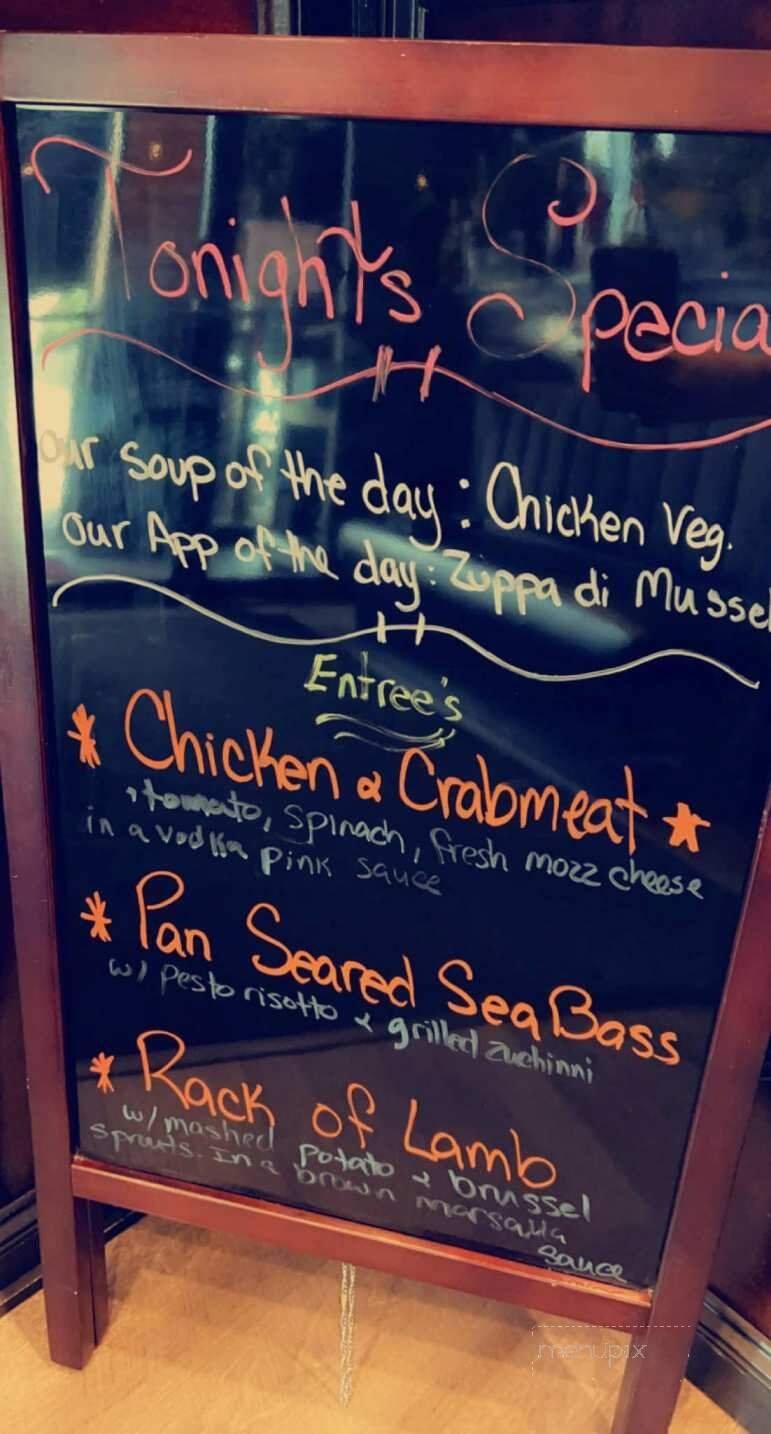 Tonights Specia
Our soup of the day: Chicken Veg.
Our App of the day: Zuppa di Mussel
Entree's
* Chicken & Crabmeat *
, tomato, Spinach, fresh mozz cheese
in a vodka pink sauce
* Pan Seared Sea Bass
w/ Pesto risotto & grilled Zuchinni
* Rack of Lamb
w/ mashed potato & brussel
sprouts. In a brown marsalla
sauce
menupix